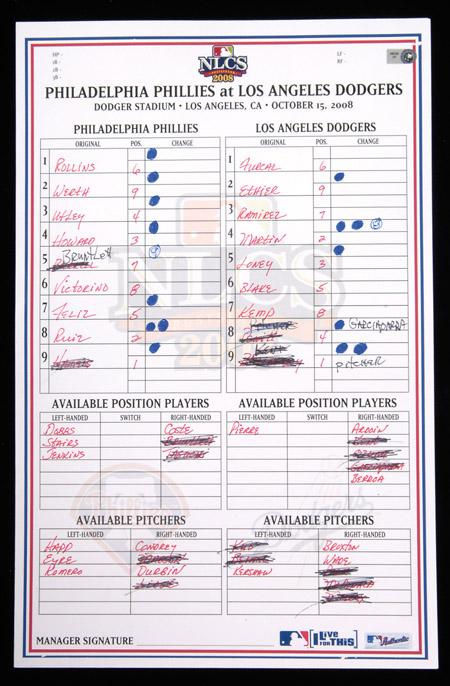 HP -
1B -
2B -
3B -
LF -
RF -
NLCS
2008
PHILADELPHIA PHILLIES at LOS ANGELES DODGERS
DODGER STADIUM • LOS ANGELES, CA • OCTOBER 15, 2008
PHILADELPHIA PHILLIES
ORIGINAL POS. CHANGE
1 ROLLINS 6
2 WERTH 9
3 UTLEY 4
4 HOWARD 3
BRUNTLETT
5 7
6 VICTORINO 8
7 FELIZ 5
8 RUIZ 2
9 1
LOS ANGELES DODGERS
ORIGINAL POS. CHANGE
1 FURCAL 6
2 ETHIER 9
3 RAMIREZ 7
4 MARTIN 2
5 LONEY 3
6 BLAKE 5
7 KEMP 8
8 PITCHER 4 GARCIAPARRA
9 KENT 1 PITCHER
AVAILABLE POSITION PLAYERS
LEFT-HANDED SWITCH RIGHT-HANDED
DOBBS COSTE
STAIRS BRUNTLETT
JENKINS
AVAILABLE POSITION PLAYERS
LEFT-HANDED SWITCH RIGHT-HANDED
PIERRE ARDOIN
KENT
GARCIAPARRA
BERROA
AVAILABLE PITCHERS
LEFT-HANDED RIGHT-HANDED
HAPP CONDREY
EYRE
ROMERO DURBIN
LIDGE
AVAILABLE PITCHERS
LEFT-HANDED RIGHT-HANDED
KUO BROXTON
BEIMEL WADE
KERSHAW
MANAGER SIGNATURE
I LIVE FOR THIS
Authentic